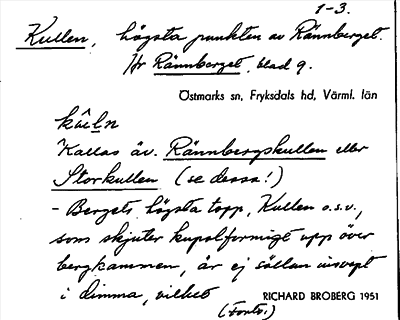 1-3.
Kullen, högsta punkten av Rännberget.
Hr Rännberget, blad 9.
Östmarks sn, Fryksdals hd, Värml. län
kûln
Kallas äv. Rännbergskullen eller
Storkullen (se dessa!)
- Bergets högsta topp, Kullen o.s.v.,
som skjuter kupolformigt upp över
bergkammen, är ej sällan insvept
i dimma, vilket
RICHARD BROBERG 1951
(Forts.)